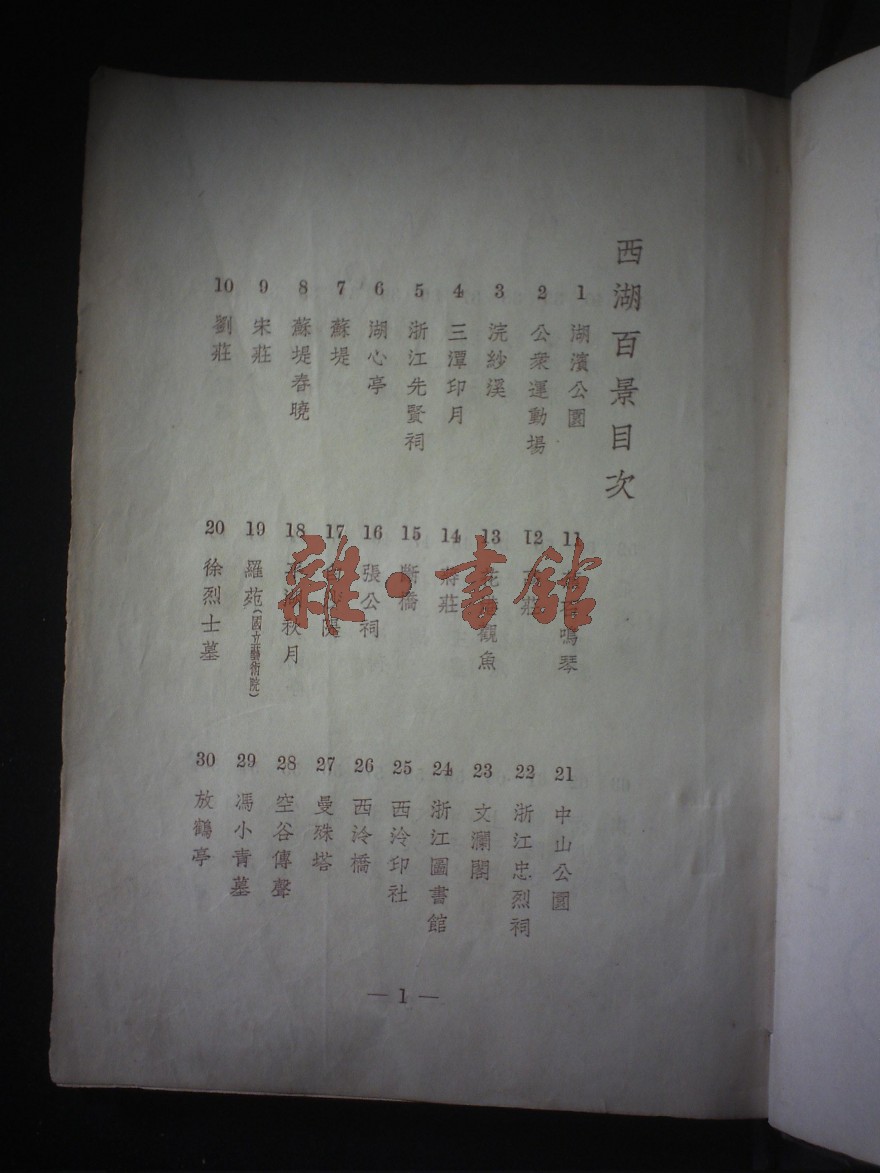 西湖百景目次
1 湖濱公園
2 公衆運動場
3 浣紗溪
4 三潭印月
5 浙江先賢祠
6 湖心亭
7 蘇堤
8 蘇堤春曉
9 宋莊
10 劉莊
11 鳴琴
12 莊
13 花觀魚
14 蔣莊
15 斷橋
16 張公祠
17
18 平湖秋月
19 羅苑(國立藝術院)
20 徐烈士墓
21 中山公園
22 浙江忠烈祠
23 文瀾閣
24 浙江圖書館
25 西泠印社
26 西泠橋
27 曼殊塔
28 空谷傳聲
29 馮小青墓
30 放鶴亭
— 1 —
雜·書館